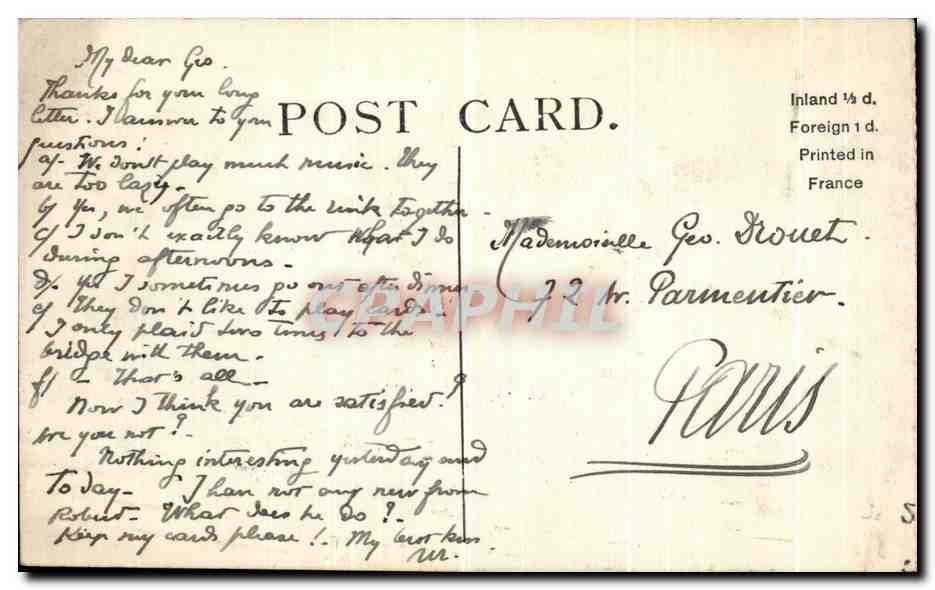 My dear Geo.
Thanks for your long
letter. I answer to your
questions:
a/- We don't play much music. They
are too lazy-
b/ Yes, we often go to the rink together-
c/ I don't exactly know what I do
during afternoons-
d/- yes I sometimes go out after dinner
e/ They don't like to play cards-
I only plaid two times to the
bridge with them.
f/ - That's all-
Now I think you are satisfied?
Are you not?-
Nothing interesting yesterday and
to day- I have not any new from
Robert- What does he do?-
Keep my cards please!- My best kiss
POST CARD.
Inland ½ d.
Foreign 1 d.
Printed in
France
Mademoiselle Geo. Drouet.
72 Av. Parmentier.
Paris
CPAPHIL